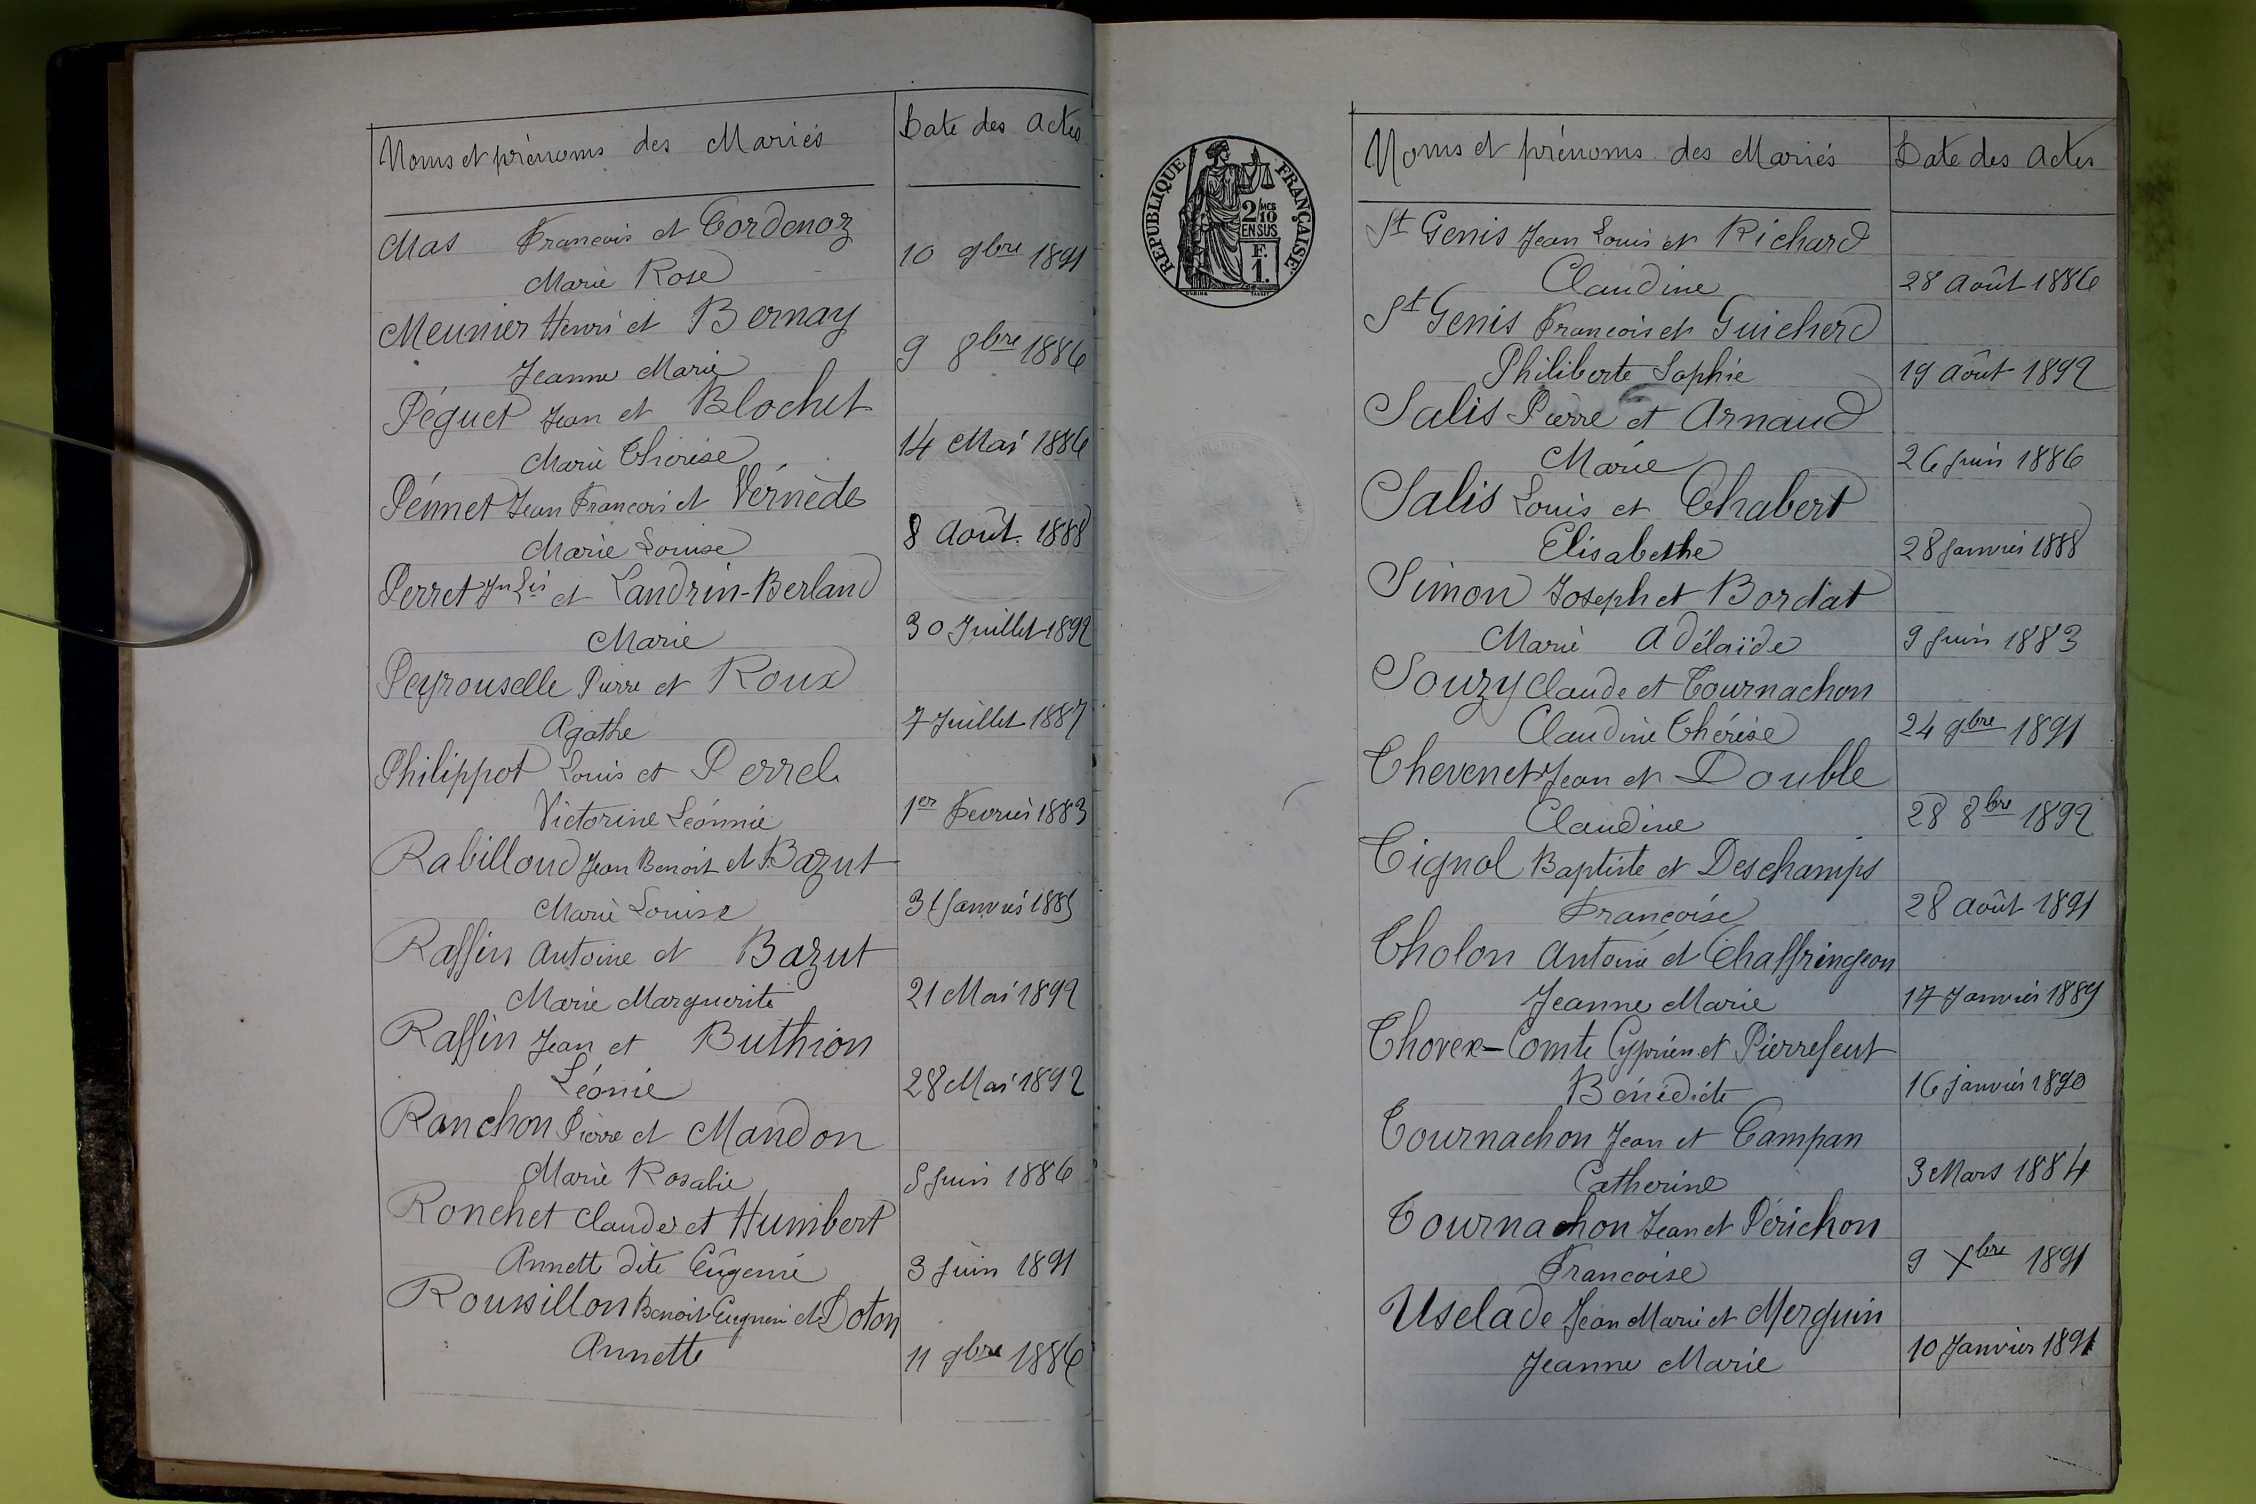 Noms et prénoms des Mariés
Date des Actes
Mas François et Cordenoz
Marie Rose
10 9bre 1891
Meunier Henri et Bernay
Jeanne Marie
9 8bre 1886
Péguet Jean et Blochet
Marie Thérèse
14 Mai 1886
Pémet Jean François et Vérnède
Marie Louise
8 Août 1888
Perret Jn Lis et Landrin-Berland
Marie
30 Juillet 1892
Peyrouselle Pierre et Roux
Agathe
7 Juillet 1887
Philippot Louis et Perrel
Victorine Léonnie
1er Fevrier 1883
Rabilloud Jean Benoit et Bazut
Marie Louise
31 Janvier 1885
Raffin Antoine et Bazut
Marie Marguerite
21 Mai 1892
Raffin Jean et Buthion
Léonie
28 Mai 1892
Ranchon Pierre et Mandon
Marie Rosalie
5 Juin 1886
Ronchet Claude et Humbert
Annette dite Eugénie
3 Juin 1891
Roussillon Benoit Eugène et Doton
Annette
11 9bre 1886
REPUBLIQUE FRANÇAISE
2/10 MES
EN SUS
F.
1.
Noms et prénoms des Mariés
Date des Actes
St Genis Jean Louis et Richard
Claudine
28 Août 1886
St Genis François et Guicherd
Philiberte Sophie
19 Août 1892
Salis Pierre et Arnaud
Marie
26 Juin 1886
Salis Louis et Chabert
Elisabethe
28 Janvier 1888
Simon Joseph et Bordat
Marie Adélaïde
9 Juin 1883
Souzy Claude et Tournachon
Claudine Thérèse
24 9bre 1891
Thevenet Jean et Double
Claudine
28 8bre 1892
Tignol Baptiste et Deschamps
Françoise
28 Août 1891
Tholon Antoine et Chaffringeon
Jeanne Marie
17 Janvier 1889
Thovex-Comte Cyprien et Pierrefeut
Bénédicte
16 Janvier 1890
Tournachon Jean et Campan
Catherine
3 Mars 1884
Tournachon Jean et Périchon
Françoise
9 Xbre 1891
Uselade Jean Marie et Merguin
Jeanne Marie
10 Janvier 1891